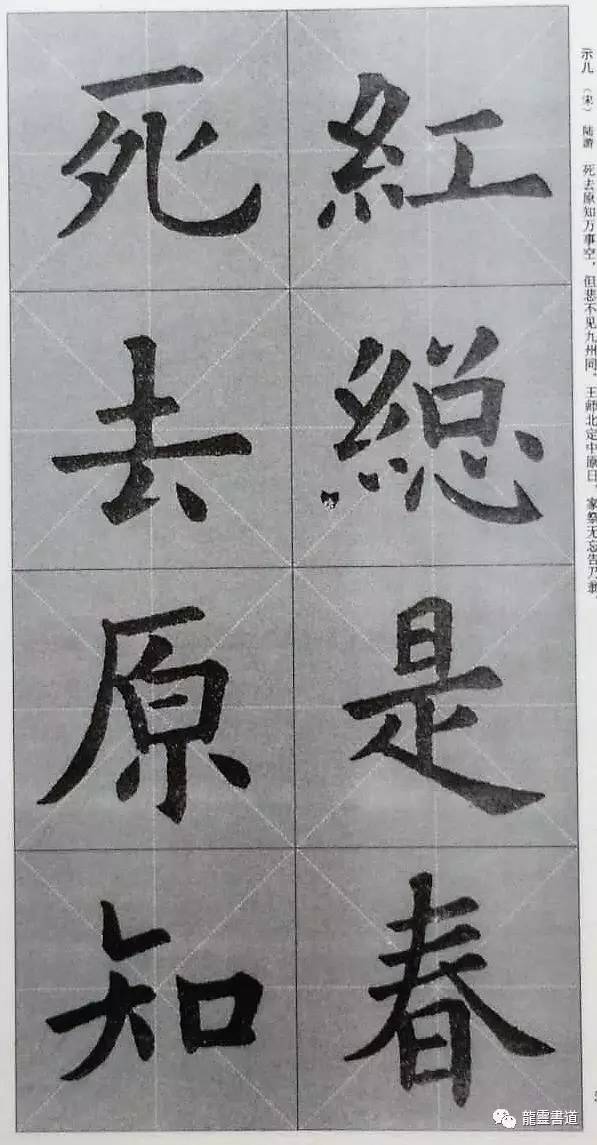 紅緫是春
死去原知
示儿 （宋） 陆游 死去原知万事空，但悲不见九州同。王师北定中原日，家祭无忘告乃翁。
龍靈書道